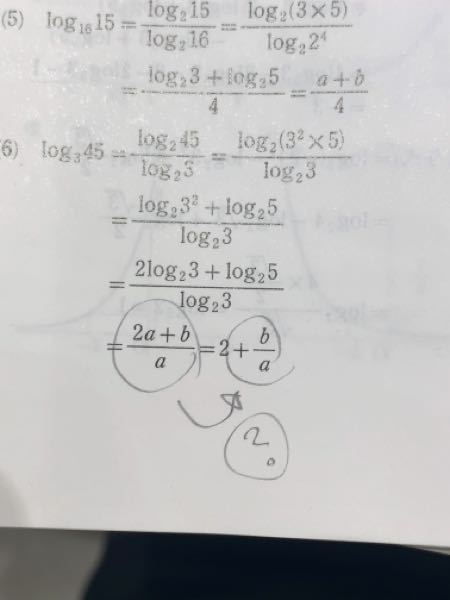 (5) log₁₆15 = log₂15/log₂16 = log₂(3×5)/log₂2⁴
= (log₂3 + log₂5)/4 = (a+b)/4
6) log₃45 = log₂45/log₂3 = log₂(3²×5)/log₂3
= (log₂3² + log₂5)/log₂3
= (2log₂3 + log₂5)/log₂3
= (2a+b)/a = 2 + b/a
?